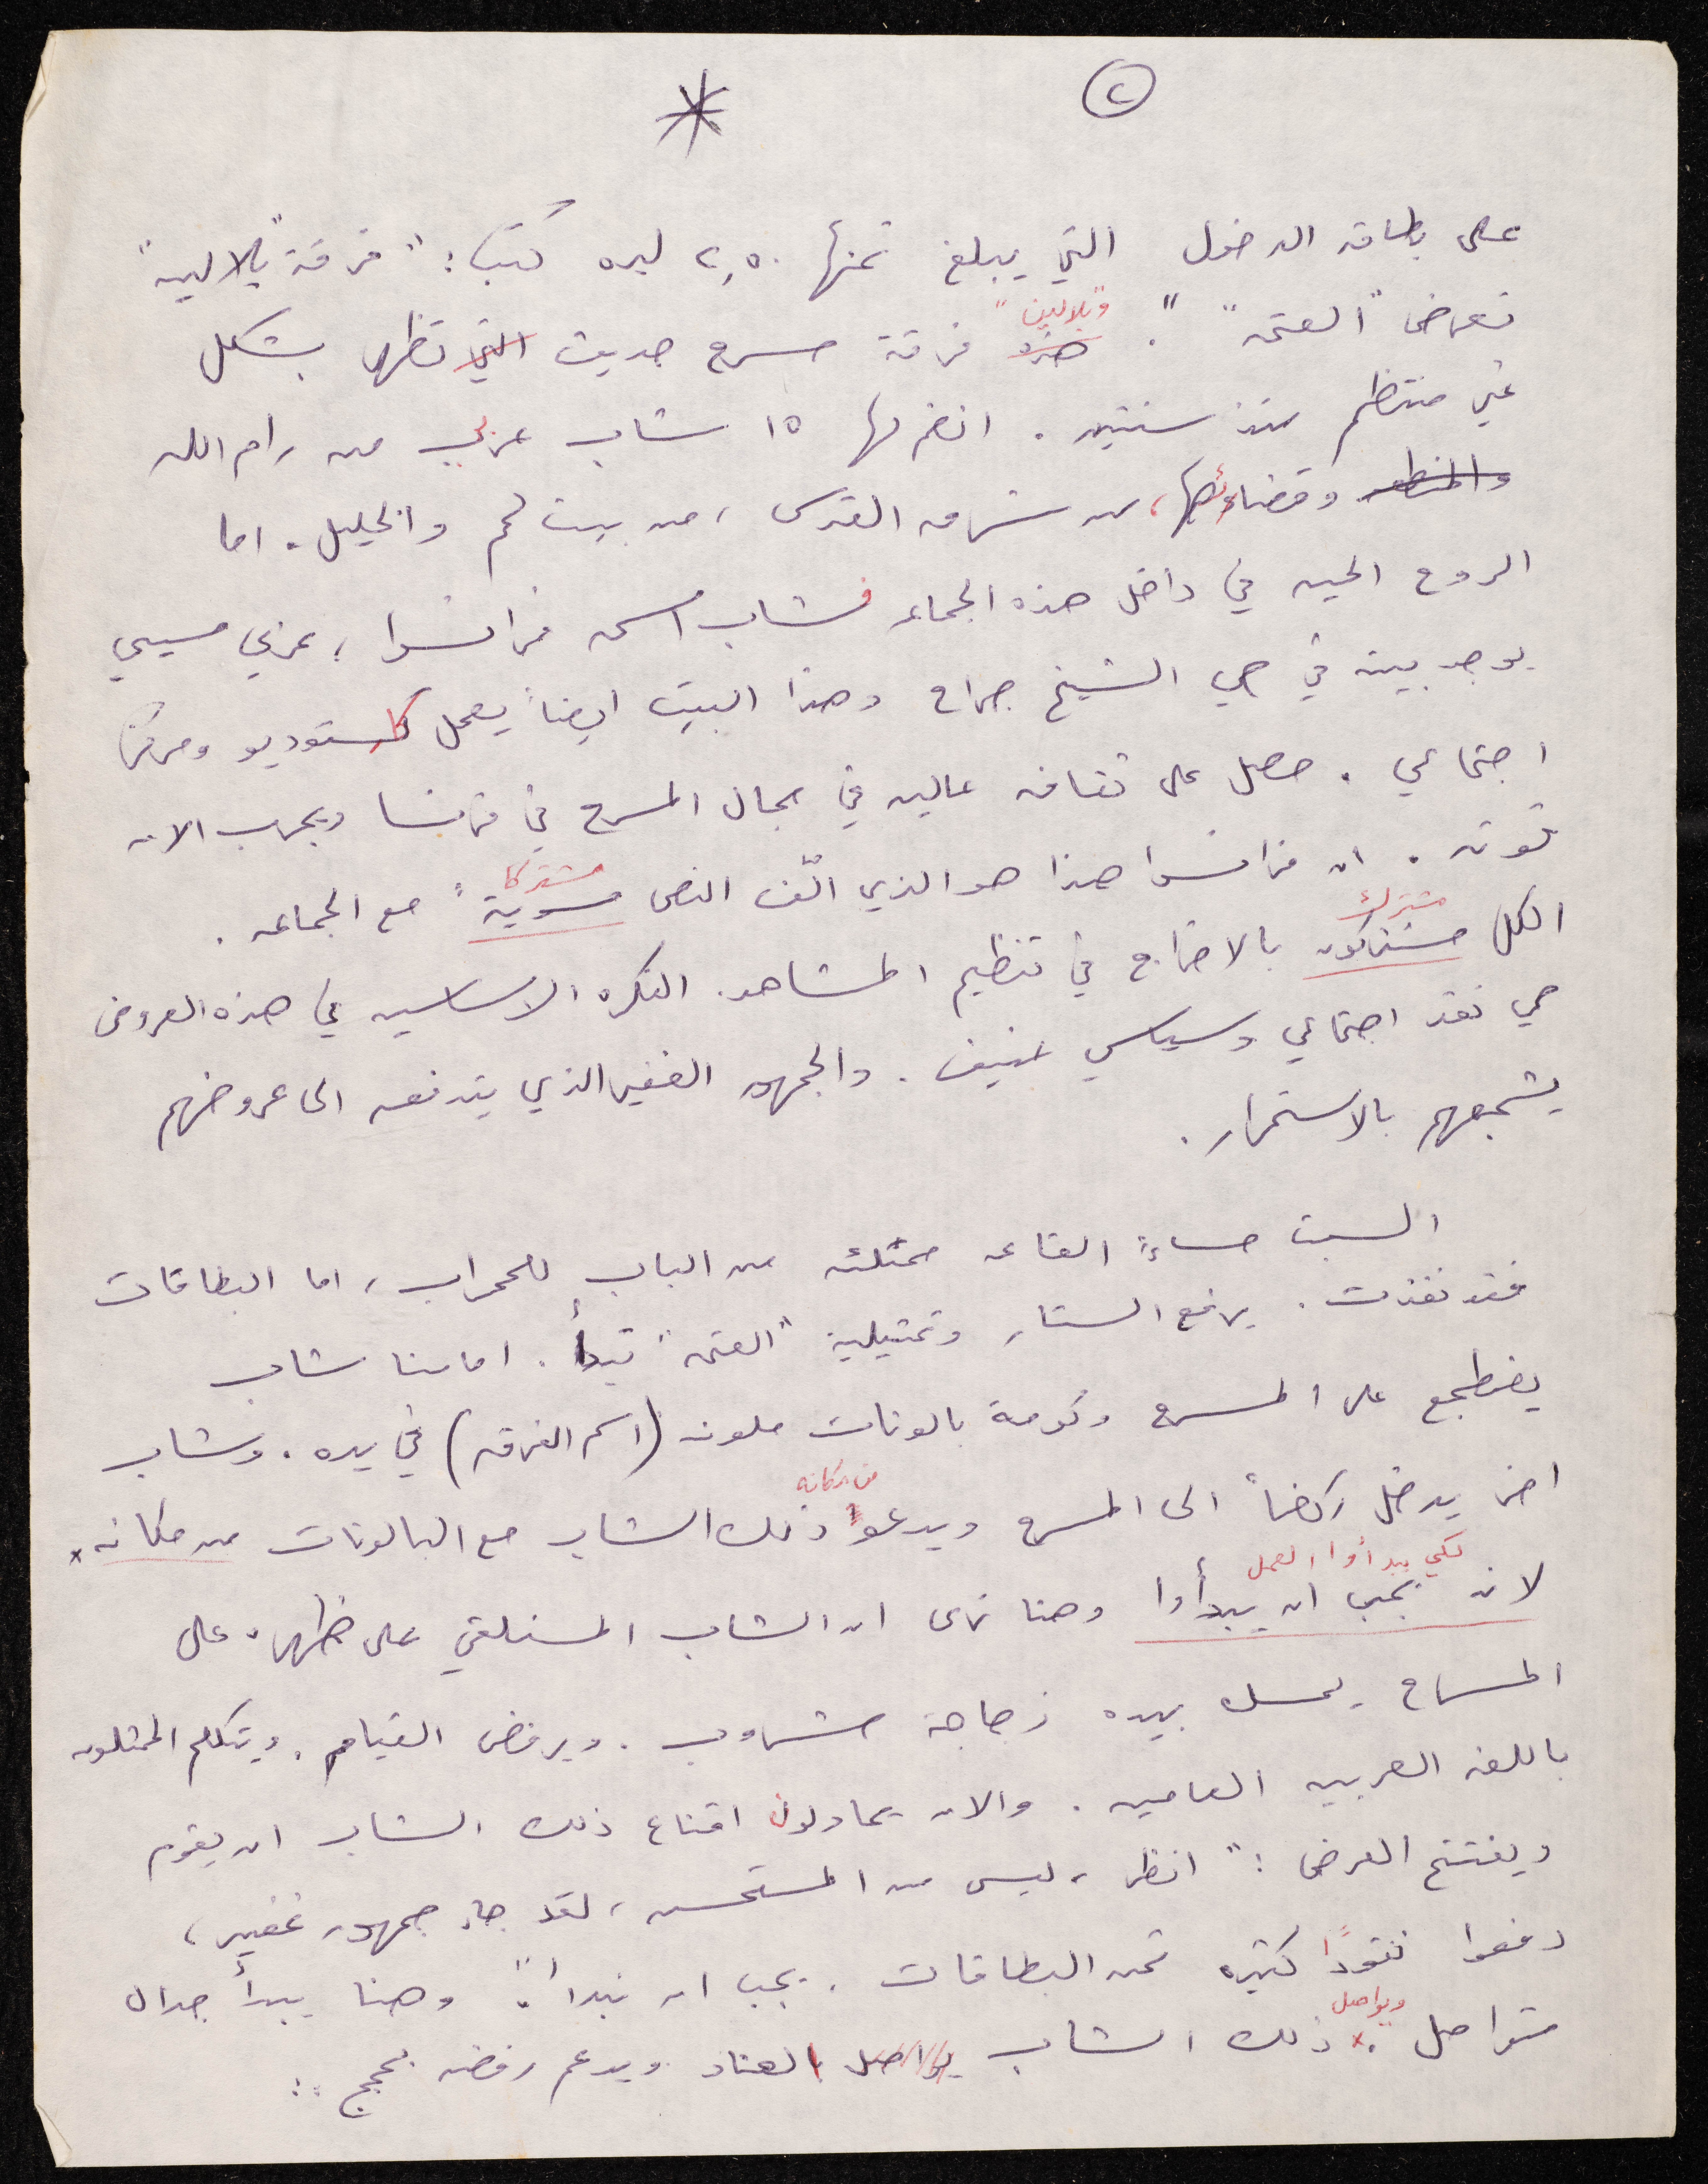 ٢
*
على بطاقة الدخول التي يبلغ ثمنها ٢,٥٠ ليره كتب: "فرقة "بلالين"
تعرض "العتمة" ". هذه "وبلالين" فرقة مسرح حديث التي تظهر بشكل
غير منتظم منذ سنتين. انضم لها ١٥ شاب عربي من رام الله
والمنطقه وقضاءها، من شرق القدس، من بيت لحم والخليل. اما
الروح الحيه في داخل هذه الجماعه فشاب اسمه فرانسوا، عربي مسيحي
يوجد بيته في حي الشيخ جراح وهذا البيت ايضاً يعمل كاستوديو ومركز
اجتماعي. حصل على ثقافه عاليه في مجال المسرح في فرنسا ويجرب الان
قوته. ان فرانسوا هذا هو الذي الّف النص سويةً مشتركا مع الجماعه.
الكل مشتركون مشترك بالاخراج في تنظيم المشاهد. الفكره الاساسيه في هذه العروض
هي نقد اجتماعي وسياسي عنيف. والجمهور الغفير الذي يتدفق الى عروضهم
يشجعهم بالاستمرار.
السبت مساءً القاعه ممتلئه من الباب للمحراب، اما البطاقات
فقد نفذت. يرفع الستار وتمثيلية "العتمه" تبدأ. امامنا شاب
يضطجع على المسرح وكومة بالونات ملونه (اسم الفرقه) في يده. وشاب
اخر يدخل ركضاً الى المسرح ويدعوا من مكانه ذلك الشاب مع البالونات من مكانه
لانه يجب ان يبدأوا لكي يبدأوا العمل وهنا نرى ان الشاب المستلقي على ظهره على
المسرح يمسك بيده زجاجة مشروب. ويرفض القيام. ويتكلم الممثلون
باللغه العربيه العاميه. والان يحاولون اقناع ذلك الشاب ان يقوم
ويفتتح العرض: "انظر، ليس من المستحسن، لقد جاء جمهور غفير،
دفعوا نقودًا كثيره ثمن البطاقات. يجب ان نبدأ". وهنا يبدأ جدال
متواصل. ويواصل ذلك الشاب يواصل العناد ويدعم رفضه بحجج: